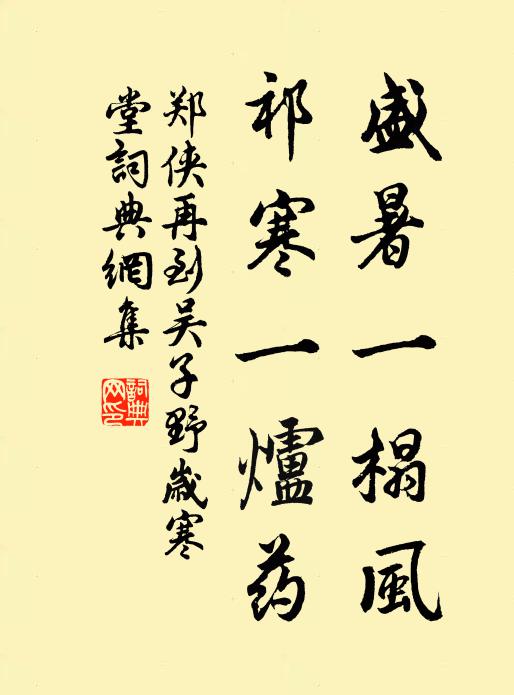 盛暑一榻風
祁寒一爐药
郑侠再到吴子野歲寒
堂詞典網集
詞典
网印